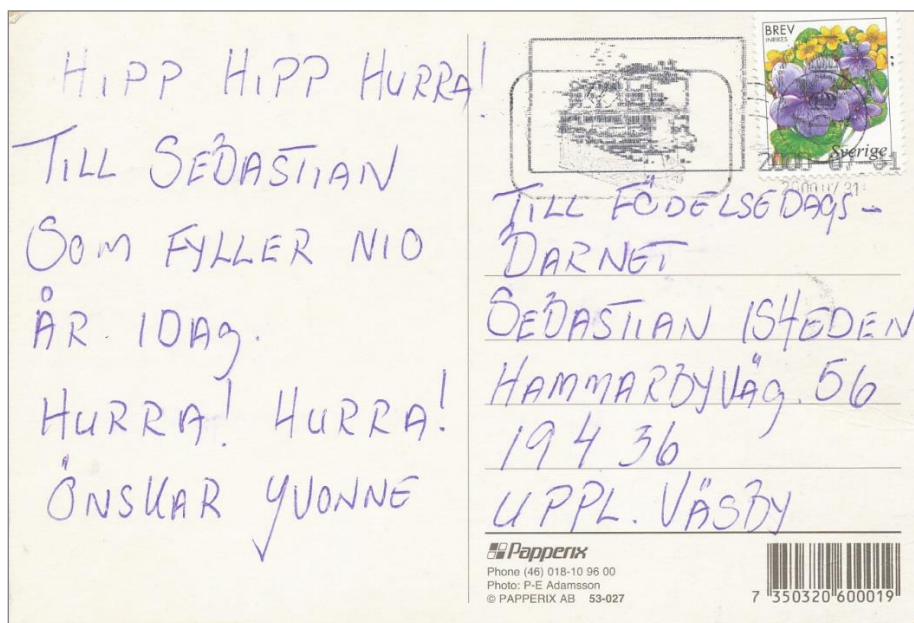 HIPP HIPP HURRA!
TILL SEBASTIAN
SOM FYLLER NIO
ÅR IDAG.
HURRA! HURRA!
ÖNSKAR YVONNE
BREV
INRIKES
Sverige
2000 07 31
TILL FÖDELSEDAGS-
BARNET
SEBASTIAN ISHEDEN
HAMMARBYVÄG. 56
194 36
UPPL. VÄSBY
Papperix
Phone (46) 018-10 96 00
Photo: P-E Adamsson
© PAPPERIX AB 53-027
7 350320 600019